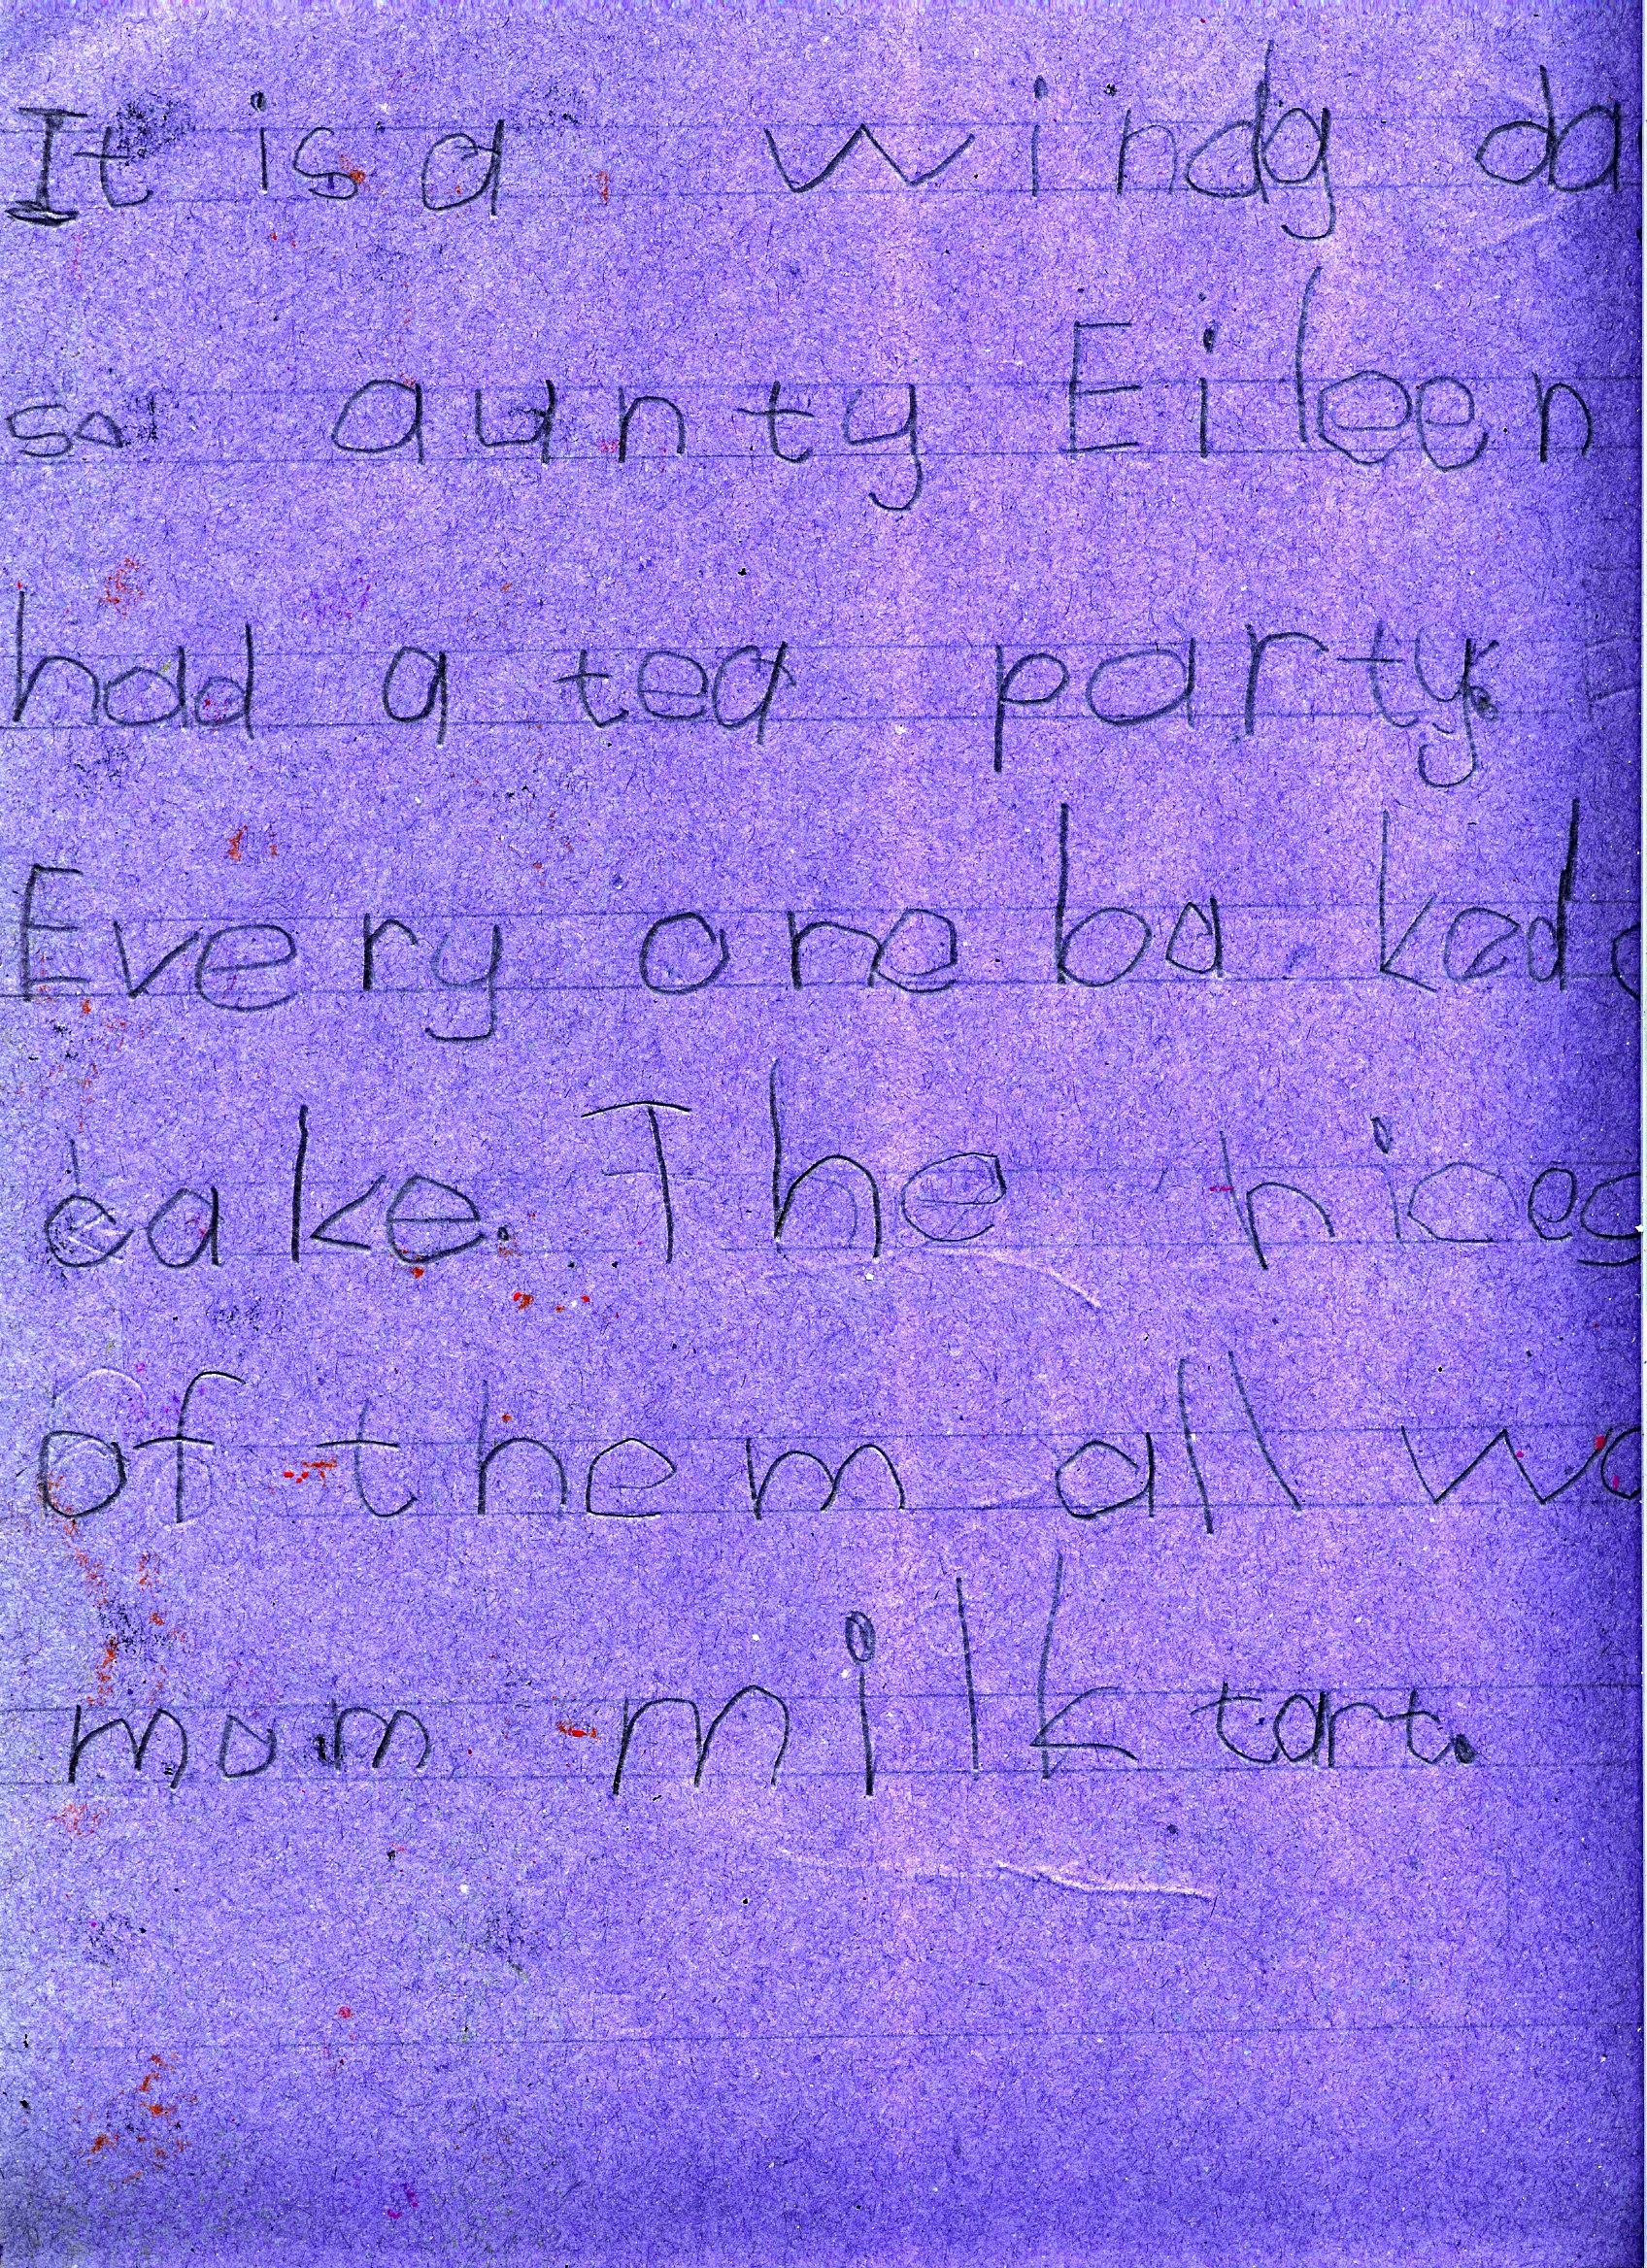 It is a windy da
so aunty Eileen
had a tea party.
Every one ba kad
cake. The nices
of them all wa
mom milk tart.